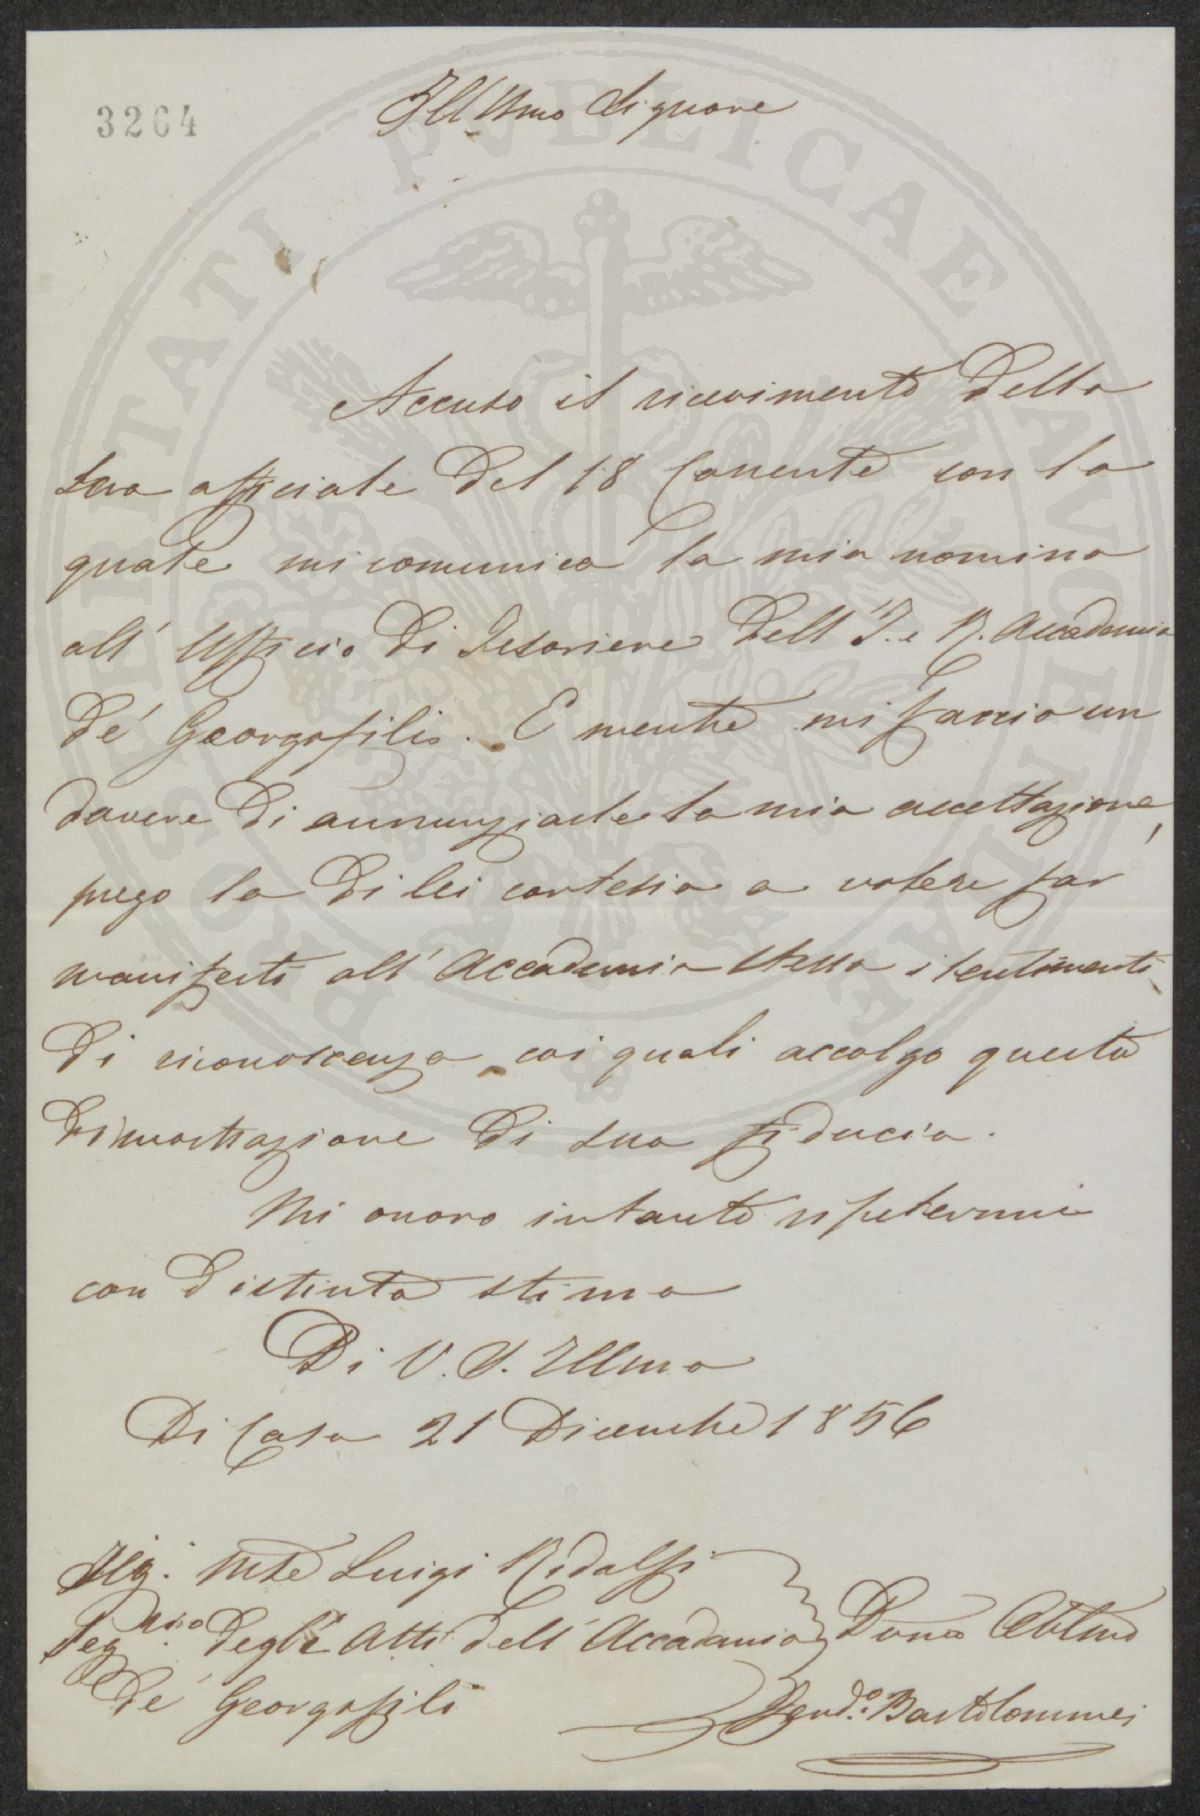 3264
Ill'Umo Signore
Accuso il ricevimento della
sua officiale del 18 Corrente con la
quale mi comunica la mia nomina
all' Ufficio di Tesoriere dell' I. e R. Accademia
dé Georgofili. E mentre mi faccio un
dovere di annunziarle la mia accettazione,
prego la di lei cortesia a volere far
manifesti all' Accademia stessa i sentimenti
di riconoscenza coi quali accolgo questa
dimostrazione di sua fiducia.
Mi onoro intanto ripetermi
con distinta stima
Di V. S. Illma
Di Casa 21 Dicembre 1856
Sig. Mse Luigi Ridolfi
Segrio degli Atti dell' Accademia
dé Georgofili
Devo Obbmo
Ferdo. Bartolommei
PROSPERITATI PVBLICAE AVGENDAE